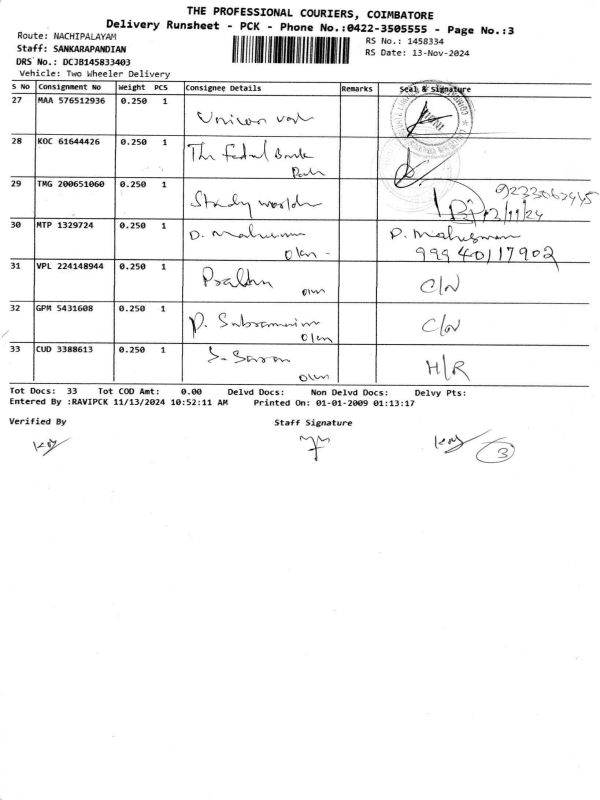 THE PROFESSIONAL COURIERS, COIMBATORE
Delivery Runsheet - PCK - Phone No.:0422-3505555 - Page No.:3
Route: NACHIPALAYAM
RS No.: 1458334
Staff: SANKARAPANDIAN
RS Date: 13-Nov-2024
DRS No.: DCJB145833403
Vehicle: Two Wheeler Delivery
S No Consignment No Weight PCS Consignee Details Remarks Seal & Signature
27 MAA 576512936 0.250 1
28 KOC 61644426 0.250 1
The Fedral Bank
29 TMG 200651060 0.250 1
Study world
13/11/24
30 MTP 1329724 0.250 1
D. D.
99940117902
31 VPL 224148944 0.250 1
Prabhu C/N
32 GPM 5431608 0.250 1
P. Subramaniam C/N
33 CUD 3388613 0.250 1
S. Saran H/R
Tot Docs: 33 Tot COD Amt: 0.00 Delvd Docs: Non Delvd Docs: Delvy Pts:
Entered By :RAVIPCK 11/13/2024 10:52:11 AM Printed On: 01-01-2009 01:13:17
Verified By Staff Signature
3